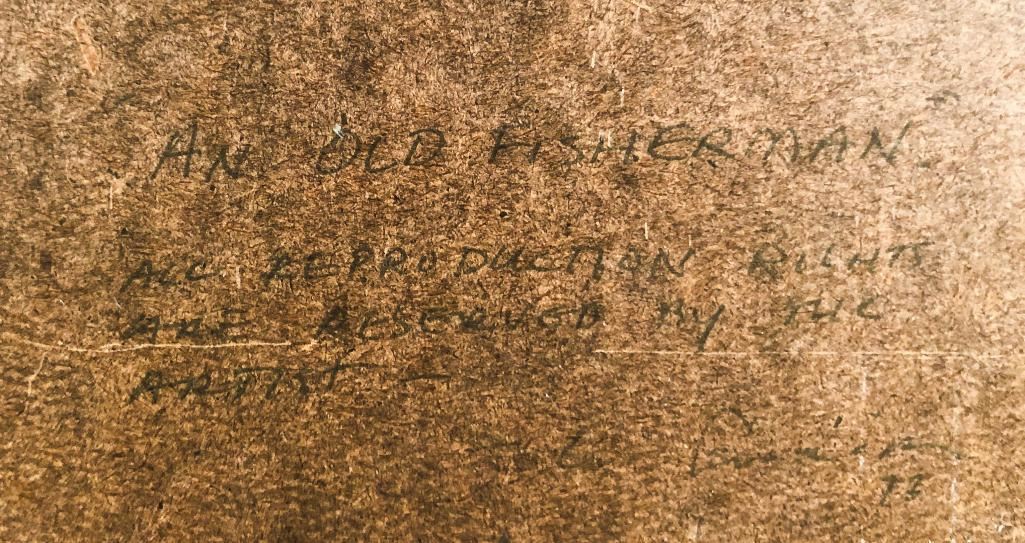 AN OLD FISHERMAN
ALL REPRODUCTION RIGHTS
ARE RESERVED BY THE
ARTIST -